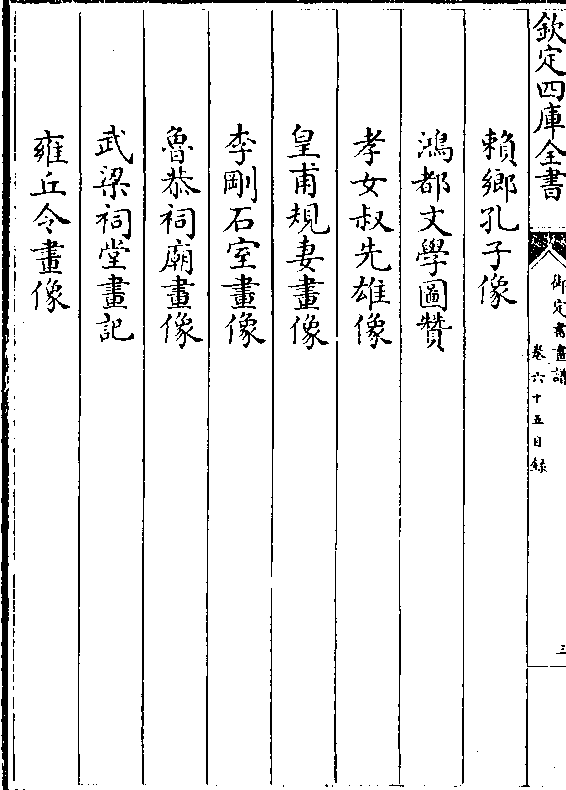 欽定四庫全書
御定書畫譜
卷六十五目錄
三
賴鄉孔子像
鴻都文學圖贊
孝女叔先雄像
皇甫規妻畫像
李剛石室畫像
魯恭祠廟畫像
武梁祠堂畫記
雍丘令畫像